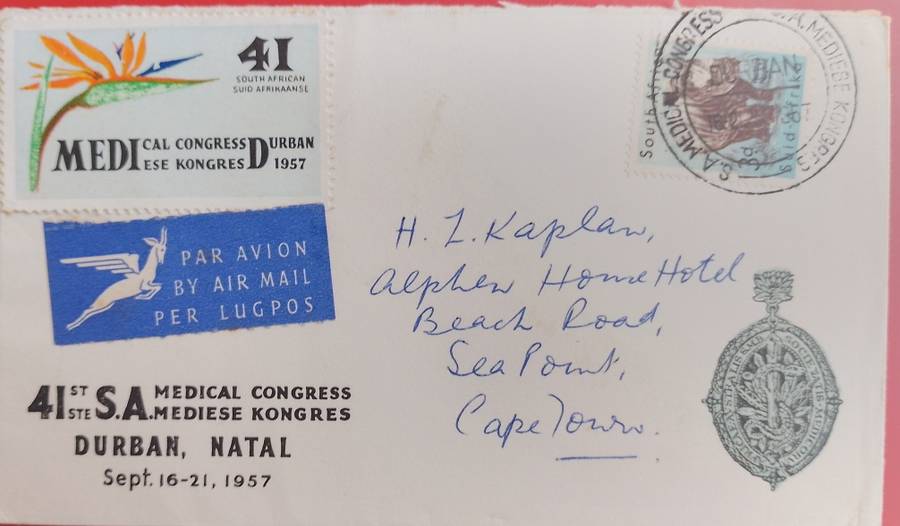 41
SOUTH AFRICAN
SUID AFRIKAANSE
MEDICAL CONGRESS DURBAN
MEDIESE KONGRES 1957
PAR AVION
BY AIR MAIL
PER LUGPOS
41ST S.A. MEDICAL CONGRESS
41STE S.A. MEDIESE KONGRES
DURBAN, NATAL
Sept. 16-21, 1957
South Africa
3d
Suid-Afrika
S.A. MEDICAL CONGRESS
S.A. MEDIESE KONGRES
H. L. Kaplan,
Alphen Home Hotel
Beach Road,
Sea Point,
Cape Town.